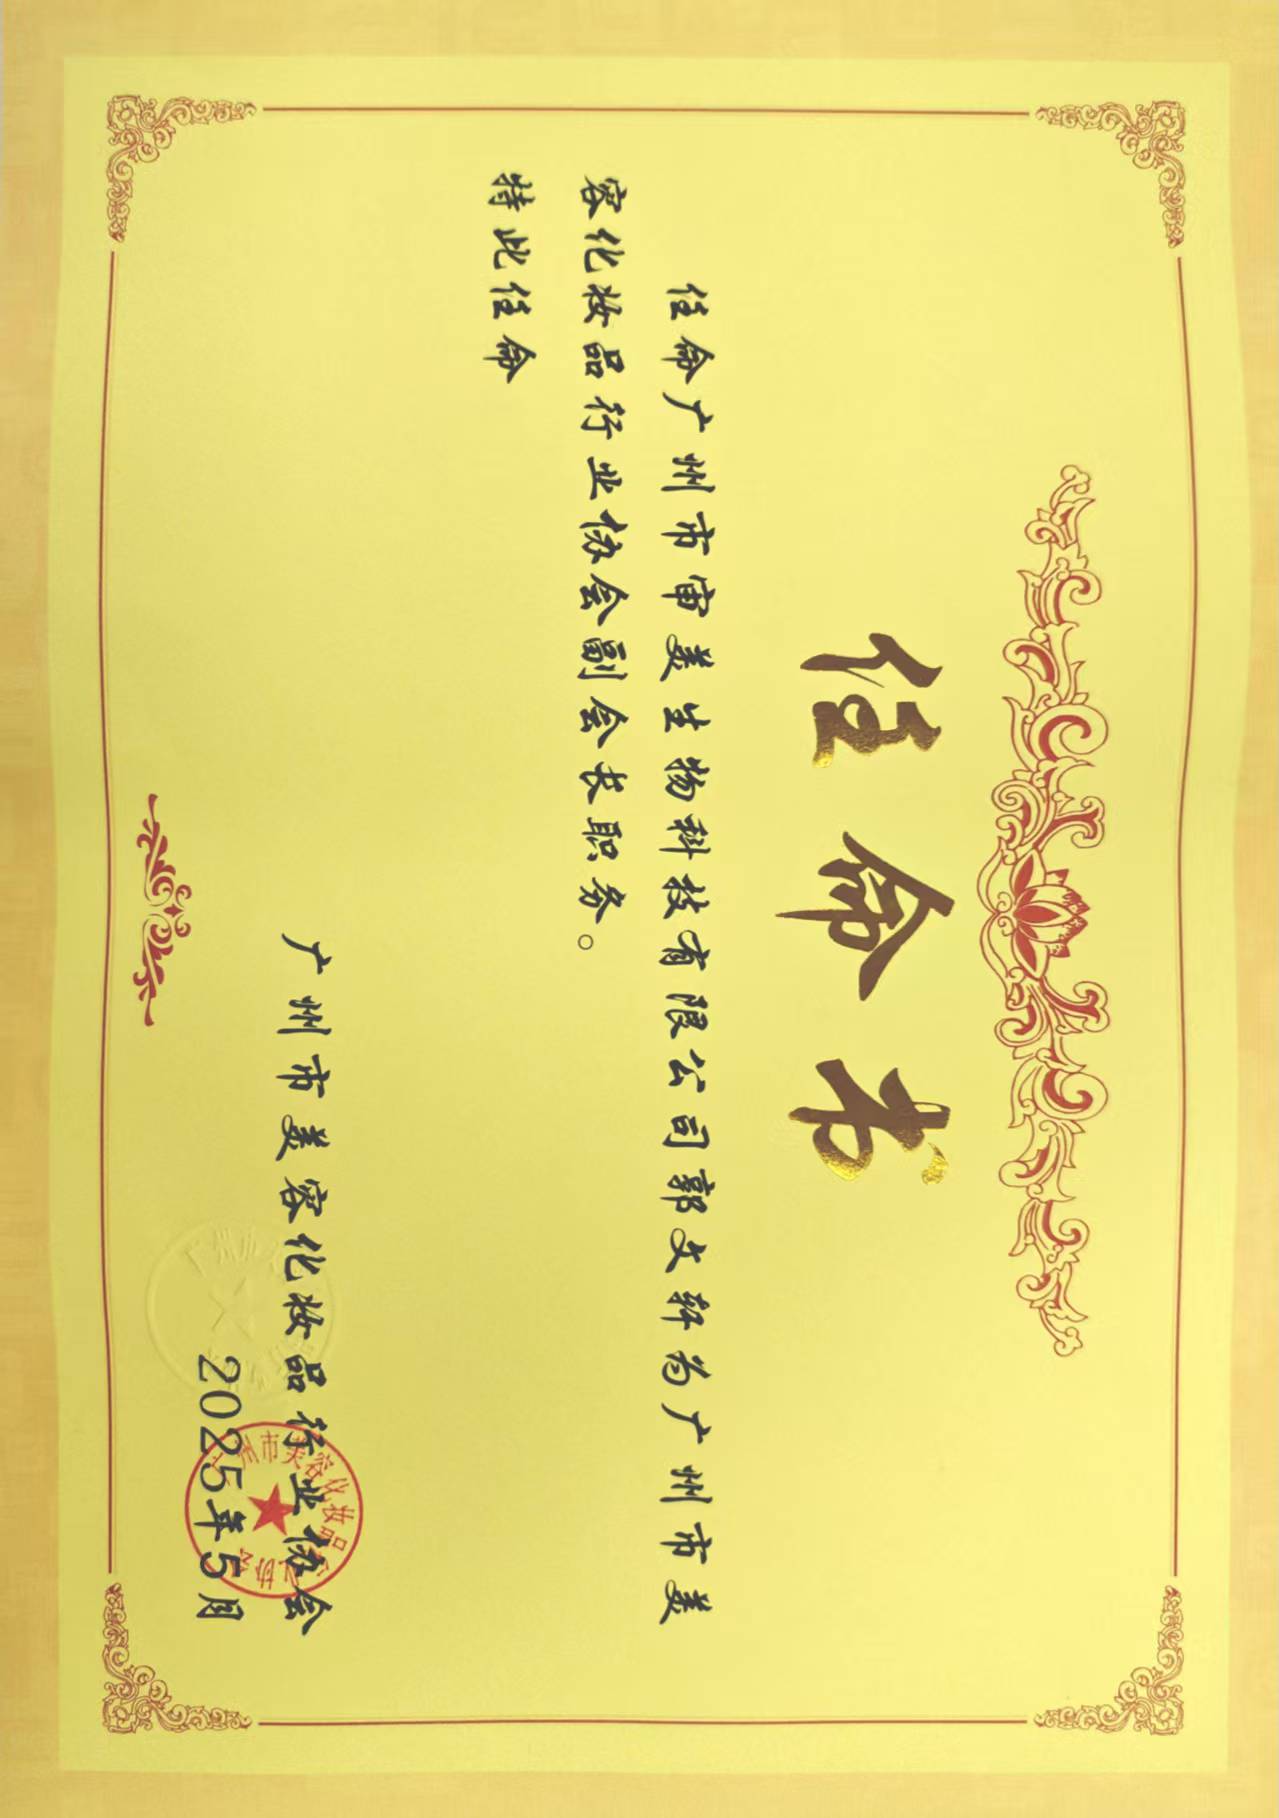 任命书
任命广州市审美生物科技有限公司郭文轩为广州市美
容化妆品行业协会副会长职务。
特此任命
广州市美容化妆品行业协会
2025年5月
广州市美容化妆品行业协会